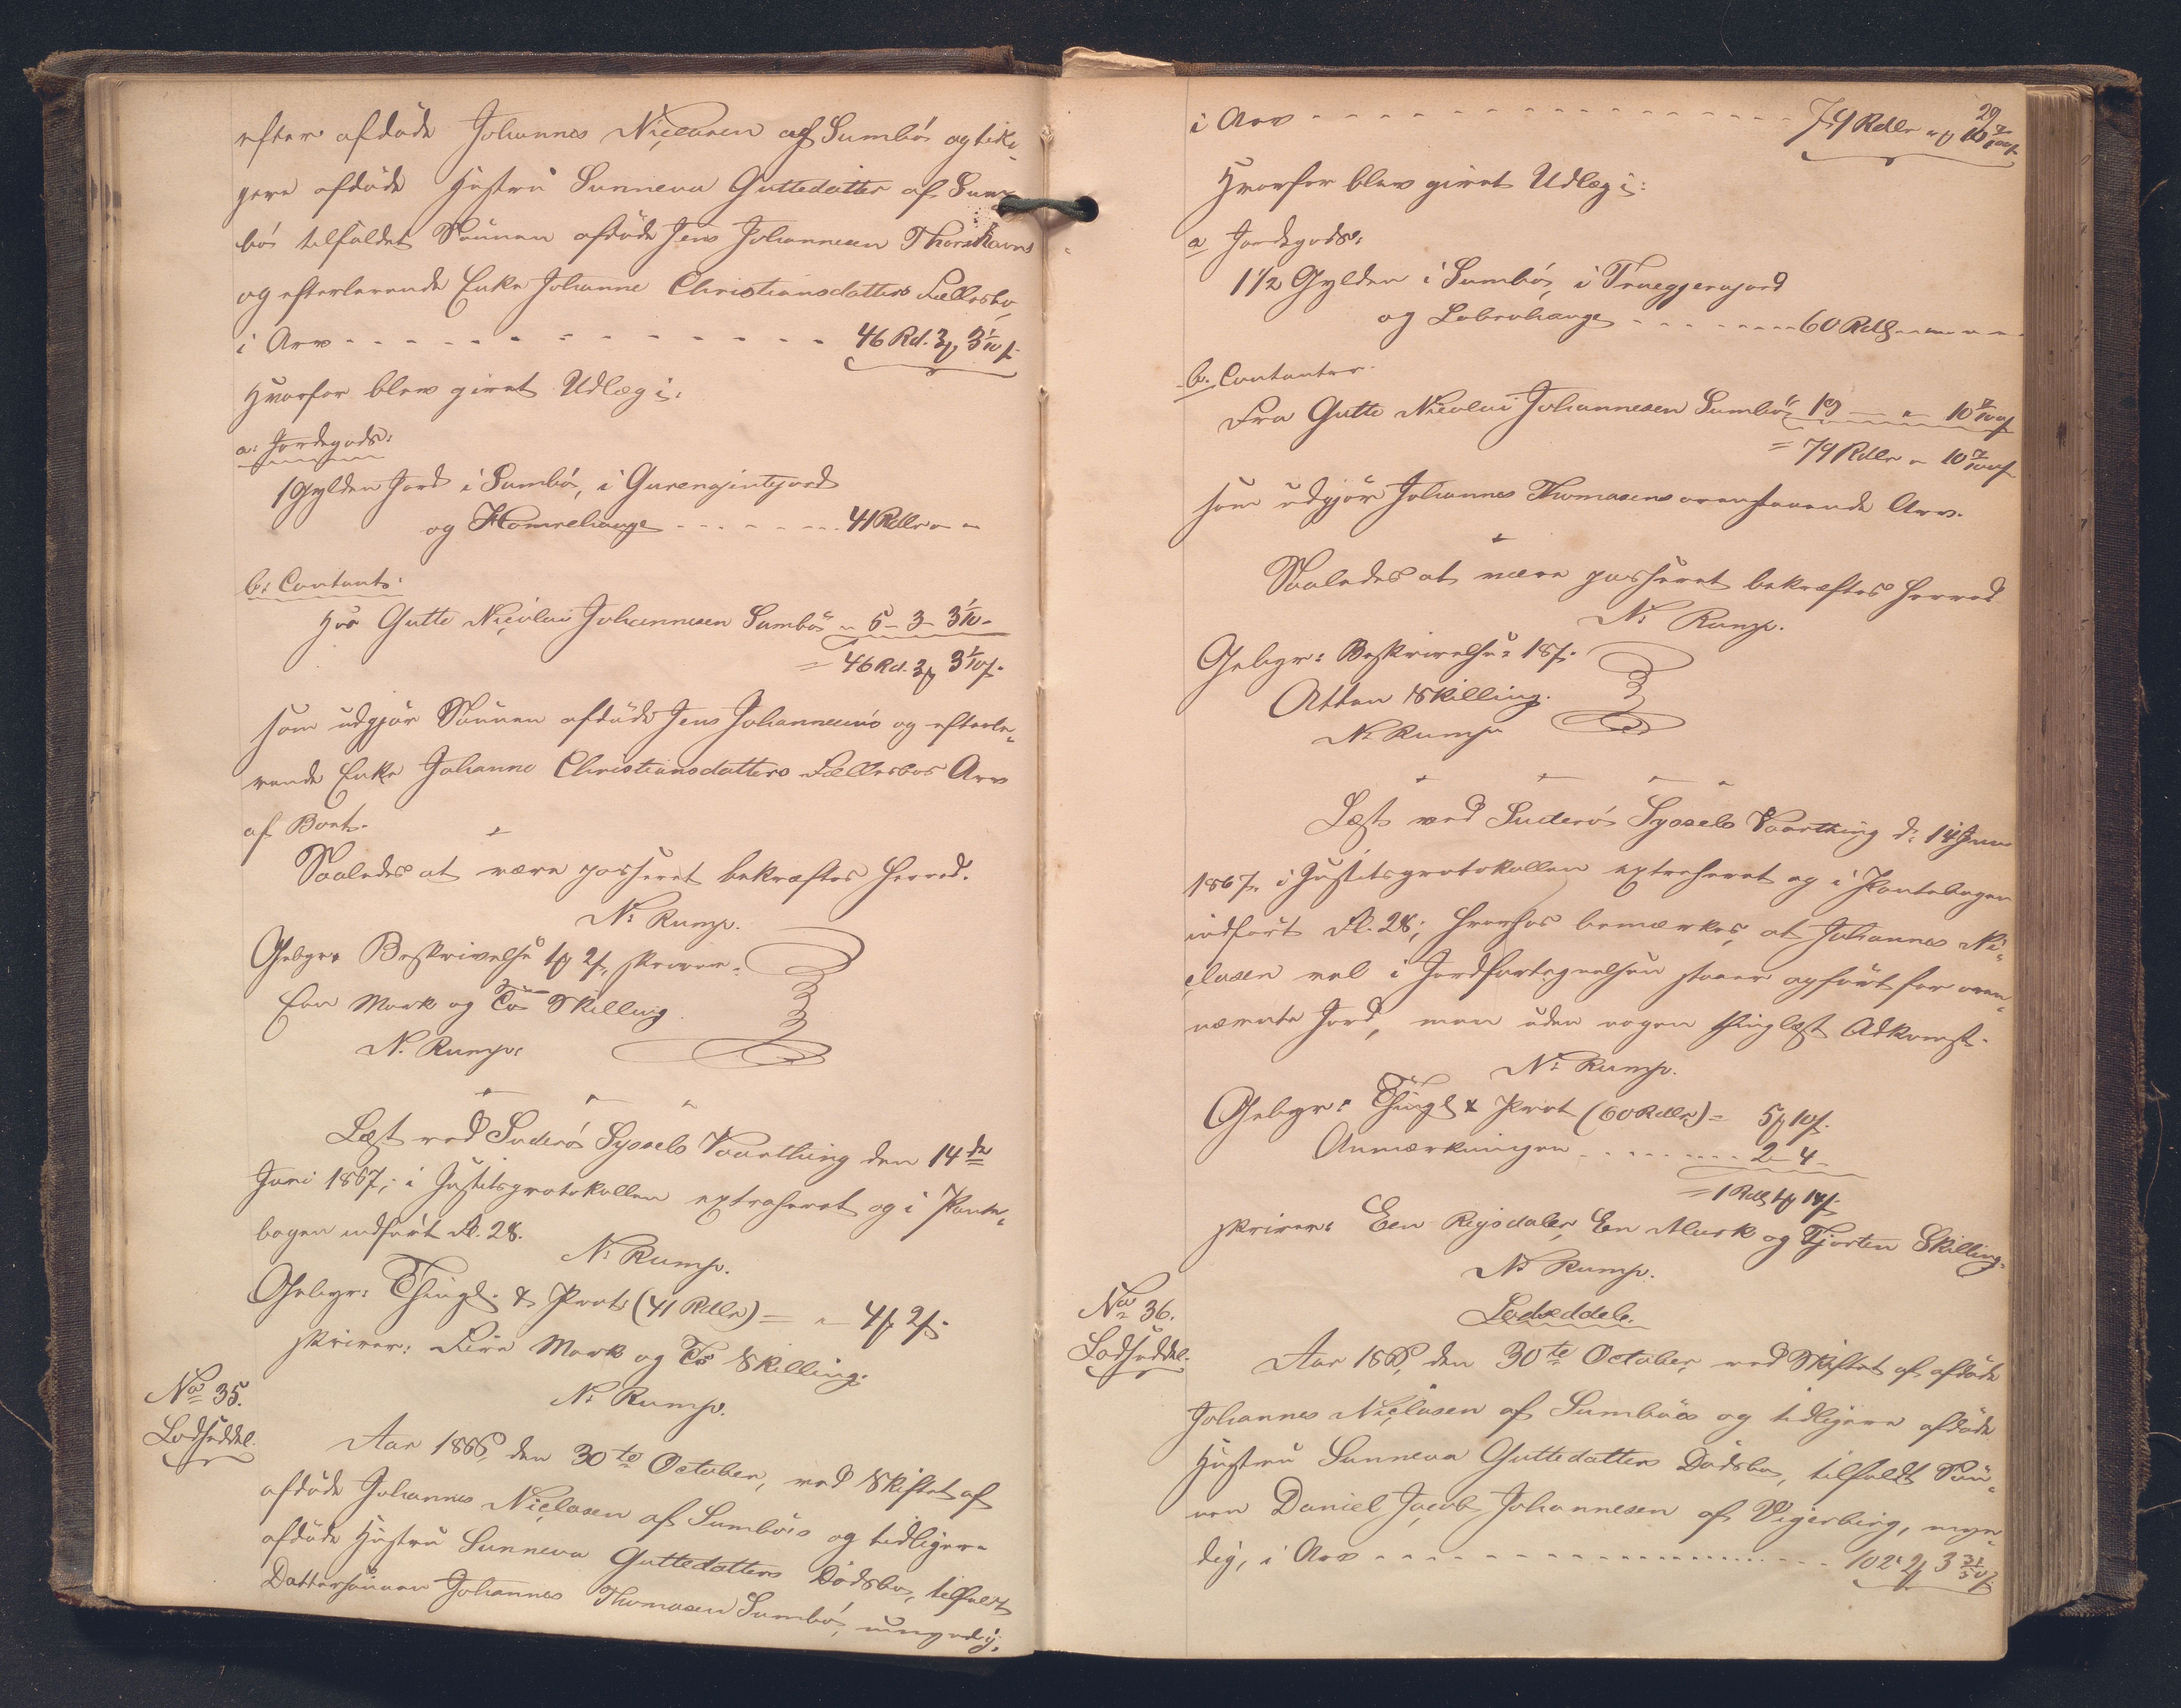 efter afdøde Johannes Niclasen af Sumbø og tidli-
gere afdøde Hustru Sunneva Guttedatter af Sum-
bø tilfaldet Sønnen afdøde Jens Johannesen Thorshavns
og efterlevende Enke Johanne Christiansdatters Fællesbo,
i Arv - - - - - - - - - - - - 46 Rd. 3 3 1/10 s
Hvorfor blev givet Udlæg i:
a: Jordegods:
1 Gylden Jord i Sumbø, i
og Hamrehauge - - - - - - - 41 Rdlr - -
b: Contant:
Hos Gutte Nicolai Johannesen Sumbø - 5 - 3 - 3 1/10 -
= 46 Rd. 3 3 1/10 s.
som udgjør Sønnen afdøde Jens Johannesens og efterle-
vende Enke Johanne Christiansdatters Fællesboes Arv
af Boet.
Saaledes at være passeret bekræftes herved.
N: Rump.
Gebyr: Beskrivelse 1 2 s, skriver:
Een Mark og To Skilling.
N. Rump.
Læst ved Suderø Syssels Vaarthing den 14de
Juni 1867; i Justitsprotokollen extraheret og i Pante-
bogen indført Fl. 28.
N: Rump.
Gebyr: Thingl. & Prot: (41 Rdlr) = " 4 2 s.
skriver: Fire Mark og To Skilling.
N: Rump.
No 35.
Lodseddel.
Aar 1866, den 30te October, ved Skiftet af
afdøde Johannes Niclasen af Sumbøes og tidligere
afdøde Hustru Sunneva Guttedatters Dødsbo, tilfaldt
Dattersønnen Johannes Thomasen Sumbø, umyndig,
29
i Arv - - - - - - - - - - - - - - - - 79 Rdlr " 10 7/10 s
Hvorfor blev givet Udlæg i:
a Jordegods:
1 1/2 Gylden i Sumbø, i
og - - - - - - - 60 Rdlr - - -
b. Contanter.
Fra Gutte Nicolai Johannesen Sumbø 19 - " - 10 7/10 s
= 79 Rdlr - 10 7/10 s
som udgjør Johannes Thomasens ovenstaaende Arv.
Saaledes at være passeret bekræftes herved
N: Rump.
Gebyr: Beskrivelse: 18 s.
Atten Skilling.
N: Rump
Læst ved Suderø Syssels Vaarthing d: 14 Juni
1867, i Justitsprotokollen extraheret og i Pantebogen
indført Fl. 28; hvorhos bemærkes, at Johannes Ni-
clasen vel i Jordfortegnelsen staaer opført for oven-
nævnte Jord, men uden nogen thinglæst Adkomst.
N: Rump.
Gebyr: Thingl & Prot (60 Rdlr) = 5 10 s.
Anmærkningen - - - - - - - 2 - 4 -
= 1 Rdlr 1 14 s.
skriver: Een Rigsdaler, Een Mark og Fjorten Skilling.
N: Rump.
No 36.
Lodseddel.
Lodseddel.
Aar 1866, den 30te October, ved Skiftet af afdøde
Johannes Niclasen af Sumbøes og tidligere afdøde
Hustru Sunneva Guttedatters Dødsbo, tilfaldt Søn-
nen Daniel Jacob Johannesen af Vigerbirg, myn-
dig, i Arv - - - - - - - - - - - - - - - 102 2 3